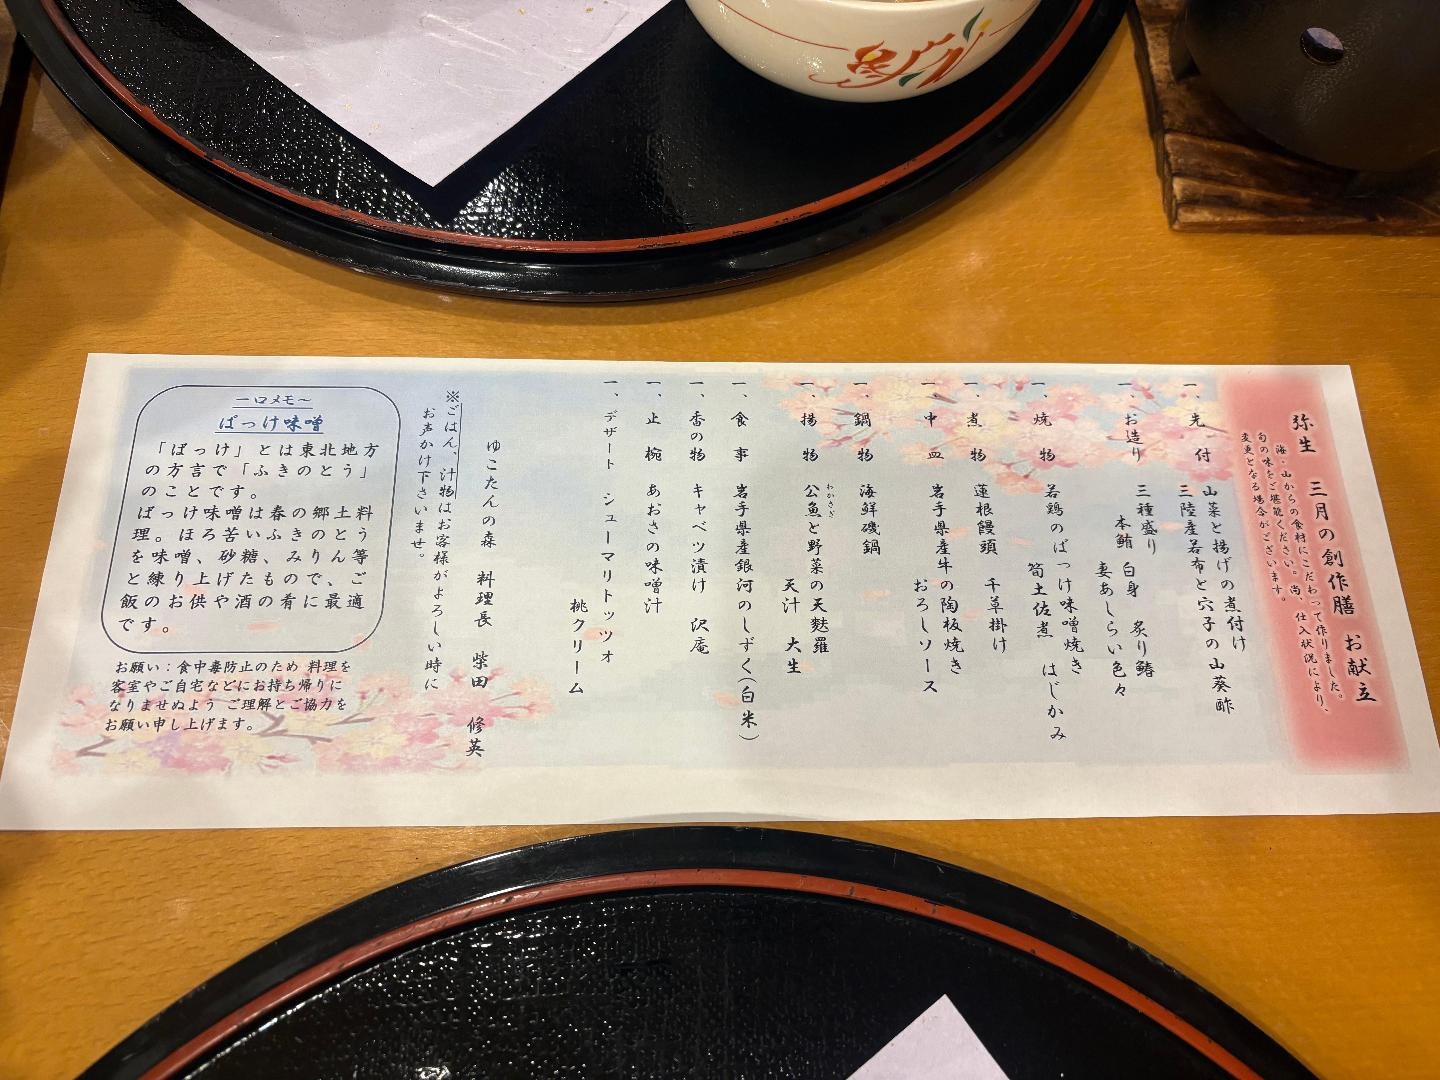 弥生　三月の創作膳　お献立
海・山からの食材にこだわって作りました。
旬の味をご堪能ください。尚、仕入状況により、
変更となる場合がございます。
一、先付　山菜と揚げの煮付け
三陸産若布と穴子の山葵酢
一、お造り　三種盛り
本鮪　白身　炙り鰆
妻あしらい色々
一、焼物　若鶏のばっけ味噌焼き
筍土佐煮　はじかみ
一、煮物　蓮根饅頭　千草掛け
一、中皿　岩手県産牛の陶板焼き
おろしソース
一、鍋物　海鮮磯鍋
一、揚物　公魚と野菜の天麩羅
わかさぎ
天汁　大生
一、食事　岩手県産銀河のしずく(白米)
一、香の物　キャベツ漬け　沢庵
一、止椀　あおさの味噌汁
一、デザート　シューマリトッツオ
桃クリーム
ゆこたんの森　料理長　柴田　修英
※ごはん、汁物はお客様がよろしい時に
お声かけ下さいませ。
一口メモ～
ばっけ味噌
「ばっけ」とは東北地方
の方言で「ふきのとう」
のことです。
ばっけ味噌は春の郷土料
理。ほろ苦いふきのとう
を味噌、砂糖、みりん等
と練り上げたもので、ご
飯のお供や酒の肴に最適
です。
お願い：食中毒防止のため 料理を
客室やご自宅などにお持ち帰りに
なりませぬよう ご理解とご協力を
お願い申し上げます。